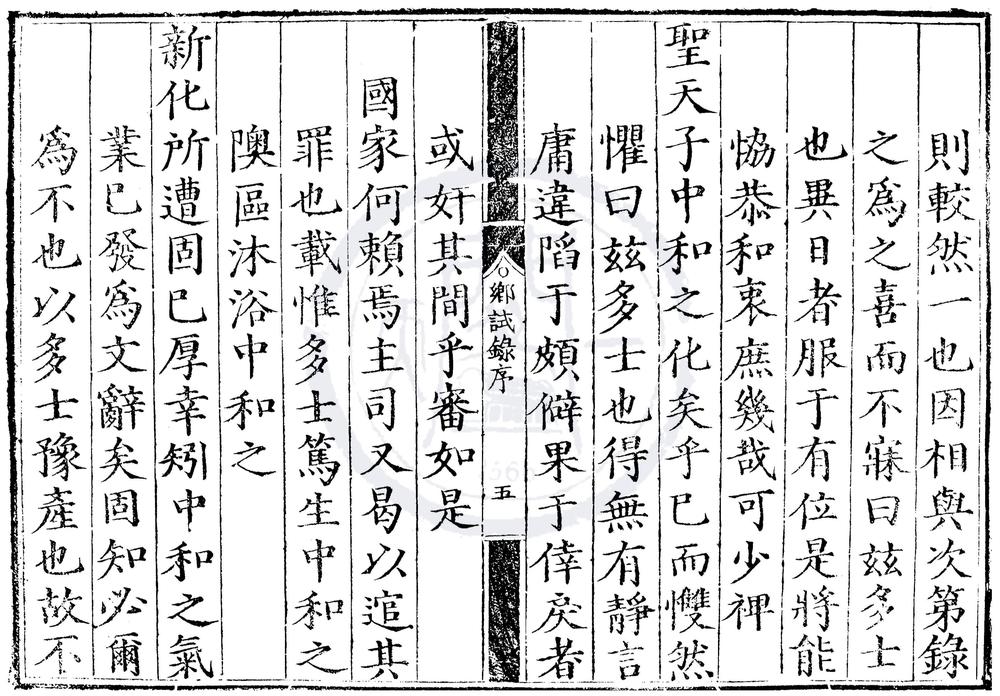 則較然一也因相與次第錄
之爲之喜而不寐曰兹多士
也異日者服于有位是將能
恊恭和衷庶幾哉可少裨
聖天子中和之化矣乎已而戄然
懼曰兹多士也得無有靜言
庸違謟于頗僻果于倖戾者
或奸其間乎審如是
鄉試錄序
五
國家何賴焉主司又曷以逭其
罪也載惟多士篤生中和之
隩區沐浴中和之
新化所遭固已厚幸矧中和之氣
業已發爲文辭矣固知必爾
爲不也以多士豫產也故不